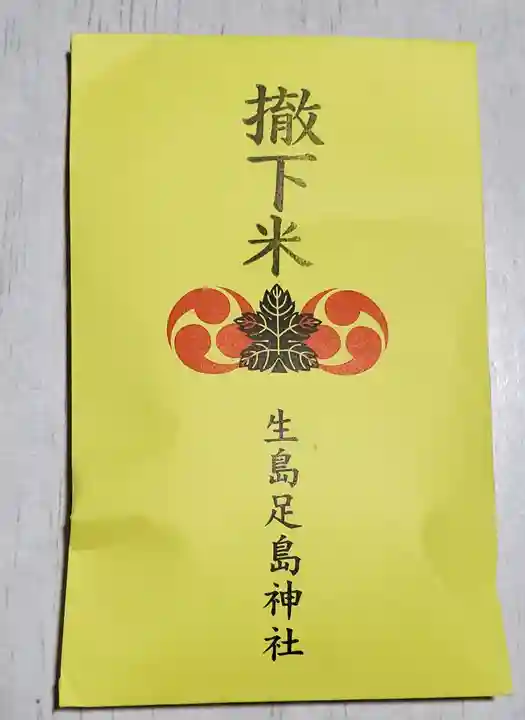 撤下米
生島足島神社